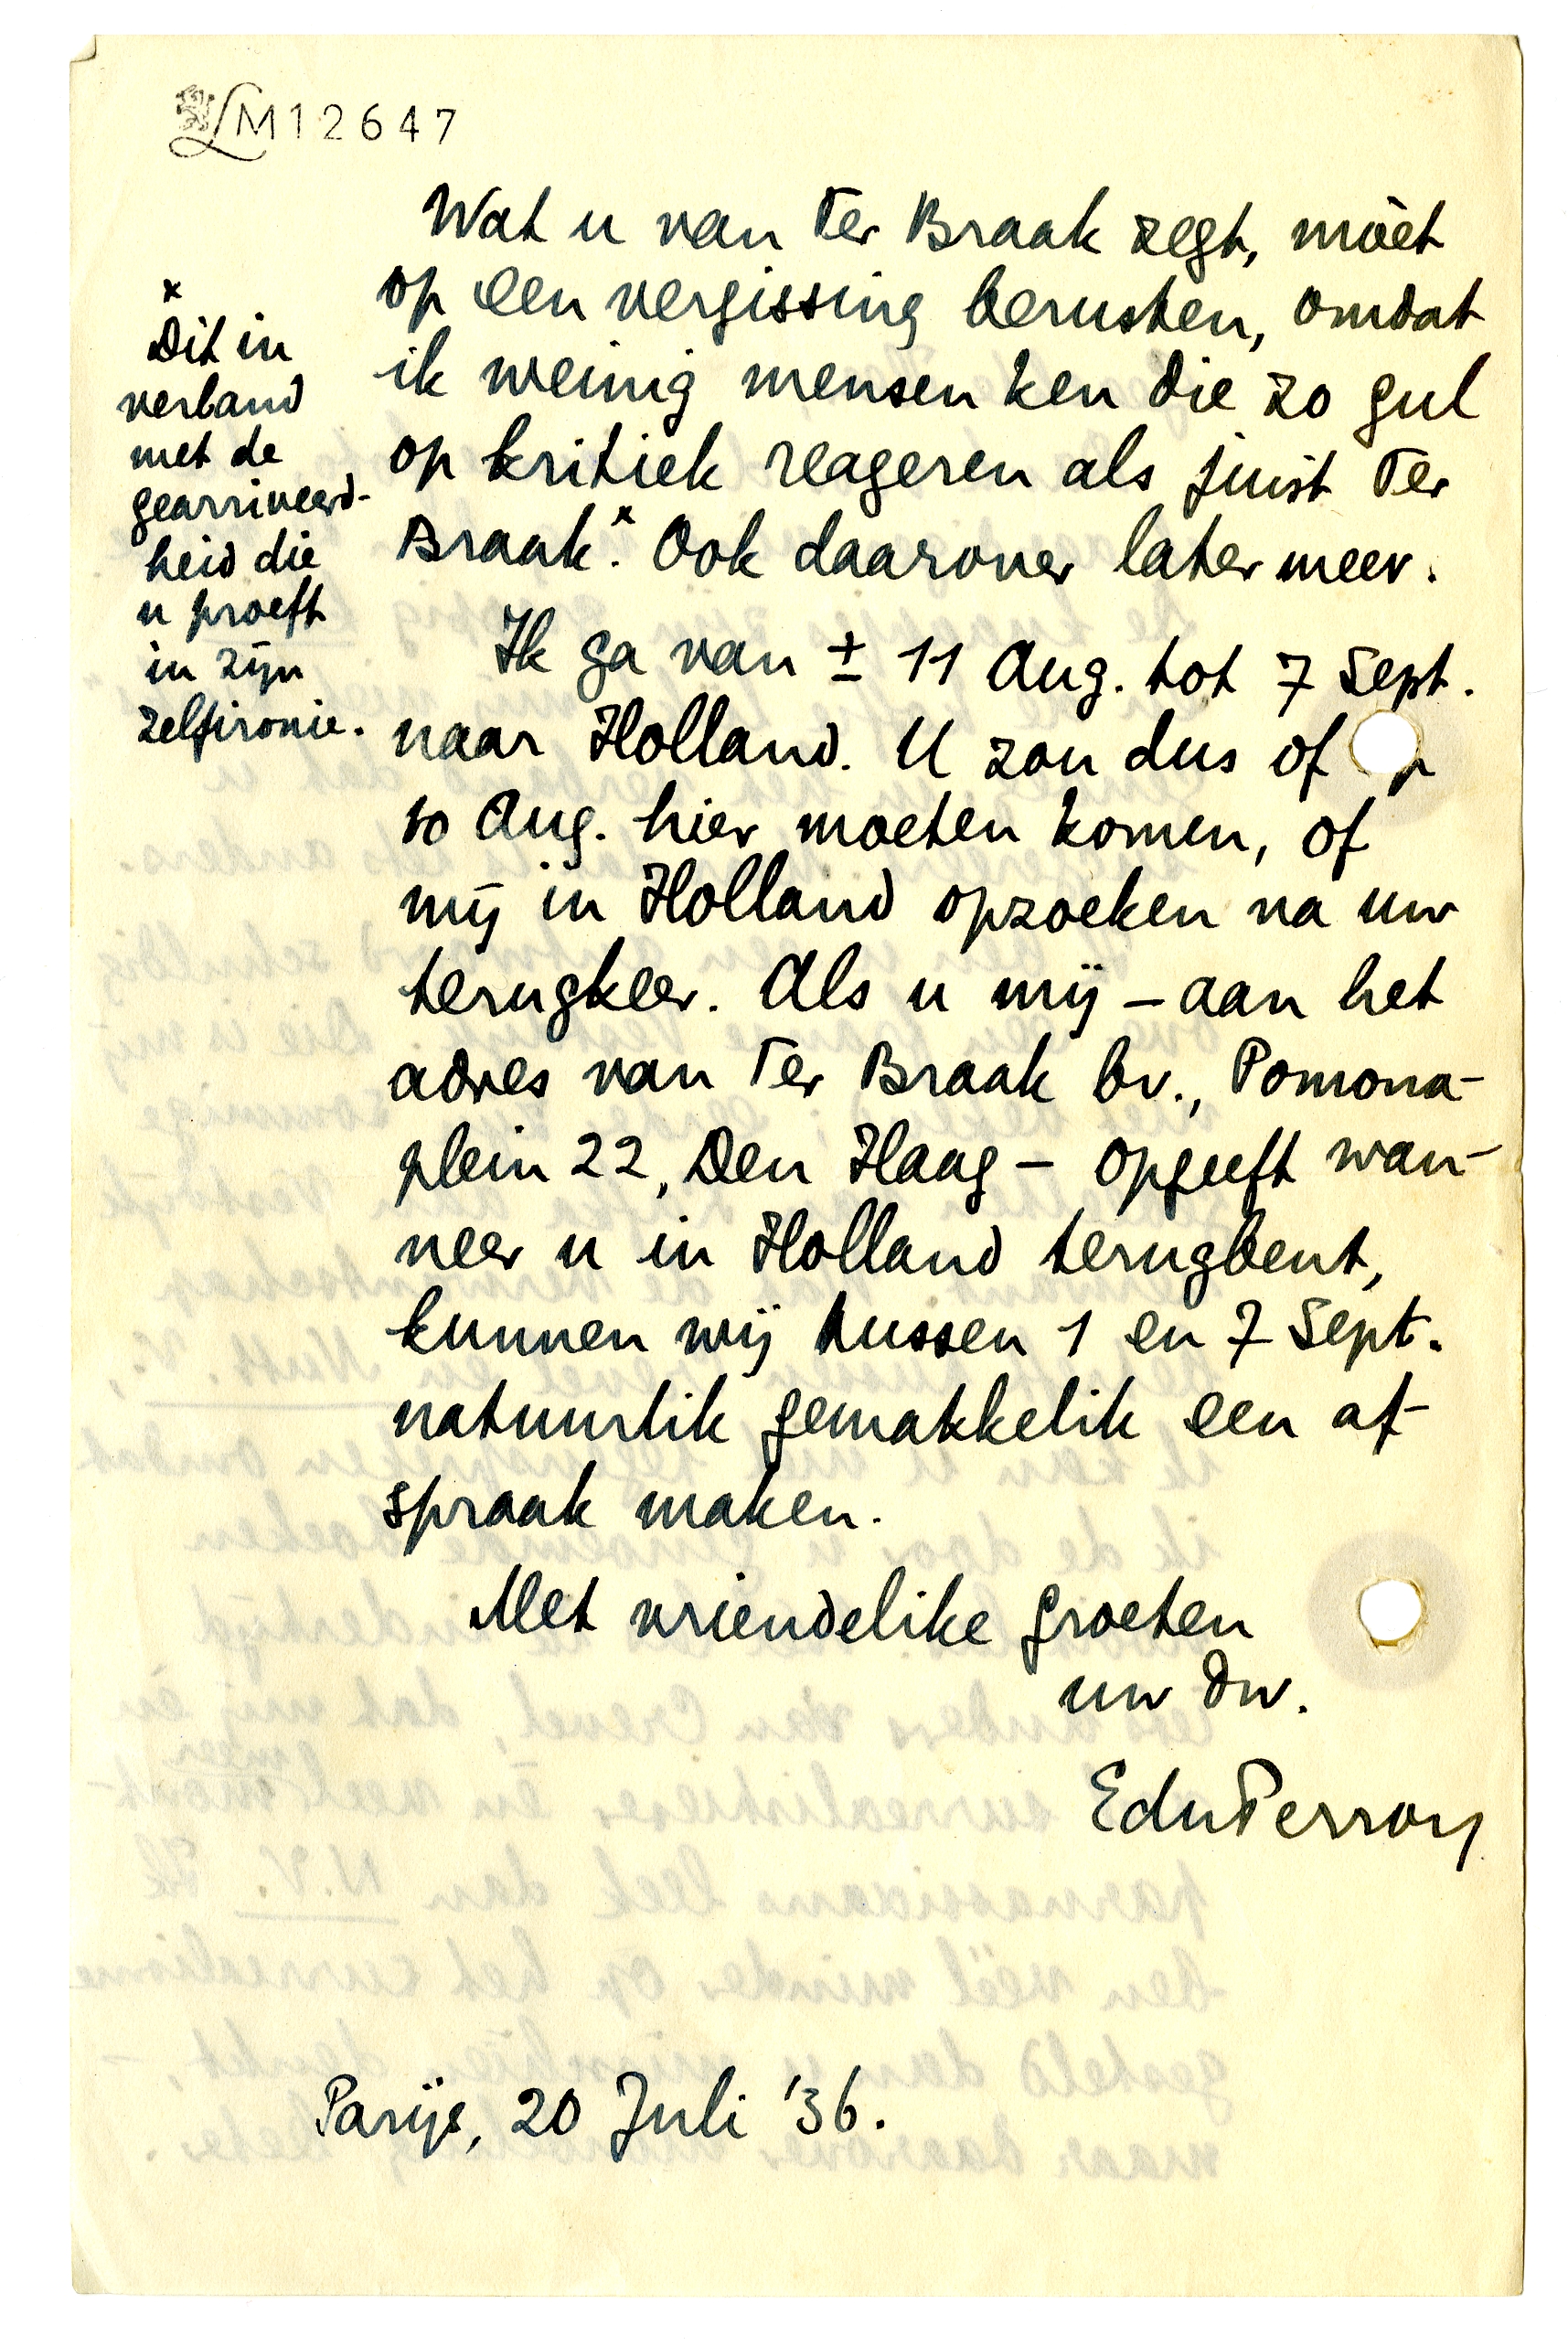 LM12647
Wat u van Ter Braak zegt, móet
op een vergissing berusten, omdat
ik weinig mensen ken die zo gul
op kritiek reageren als juist Ter
Braak.x Ook daarover later meer.
x
Dit in
verband
met de
gearriveerd-
heid die
u proeft
in zijn
zelfironie.
Ik ga van ± 11 Aug. tot 7 Sept.
naar Holland. U zou dus of op
10 Aug. hier moeten komen, of
mij in Holland opzoeken na uw
terugkeer. Als u mij – aan het
adres van Ter Braak bv., Pomona-
plein 22, Den Haag – opgeeft wan-
neer u in Holland terugbent,
kunnen wij tussen 1 en 7 Sept.
natuurlik gemakkelik een af-
spraak maken.
Met vriendelike groeten
uw dw.
EduPerron
Parijs, 20 Juli '36.